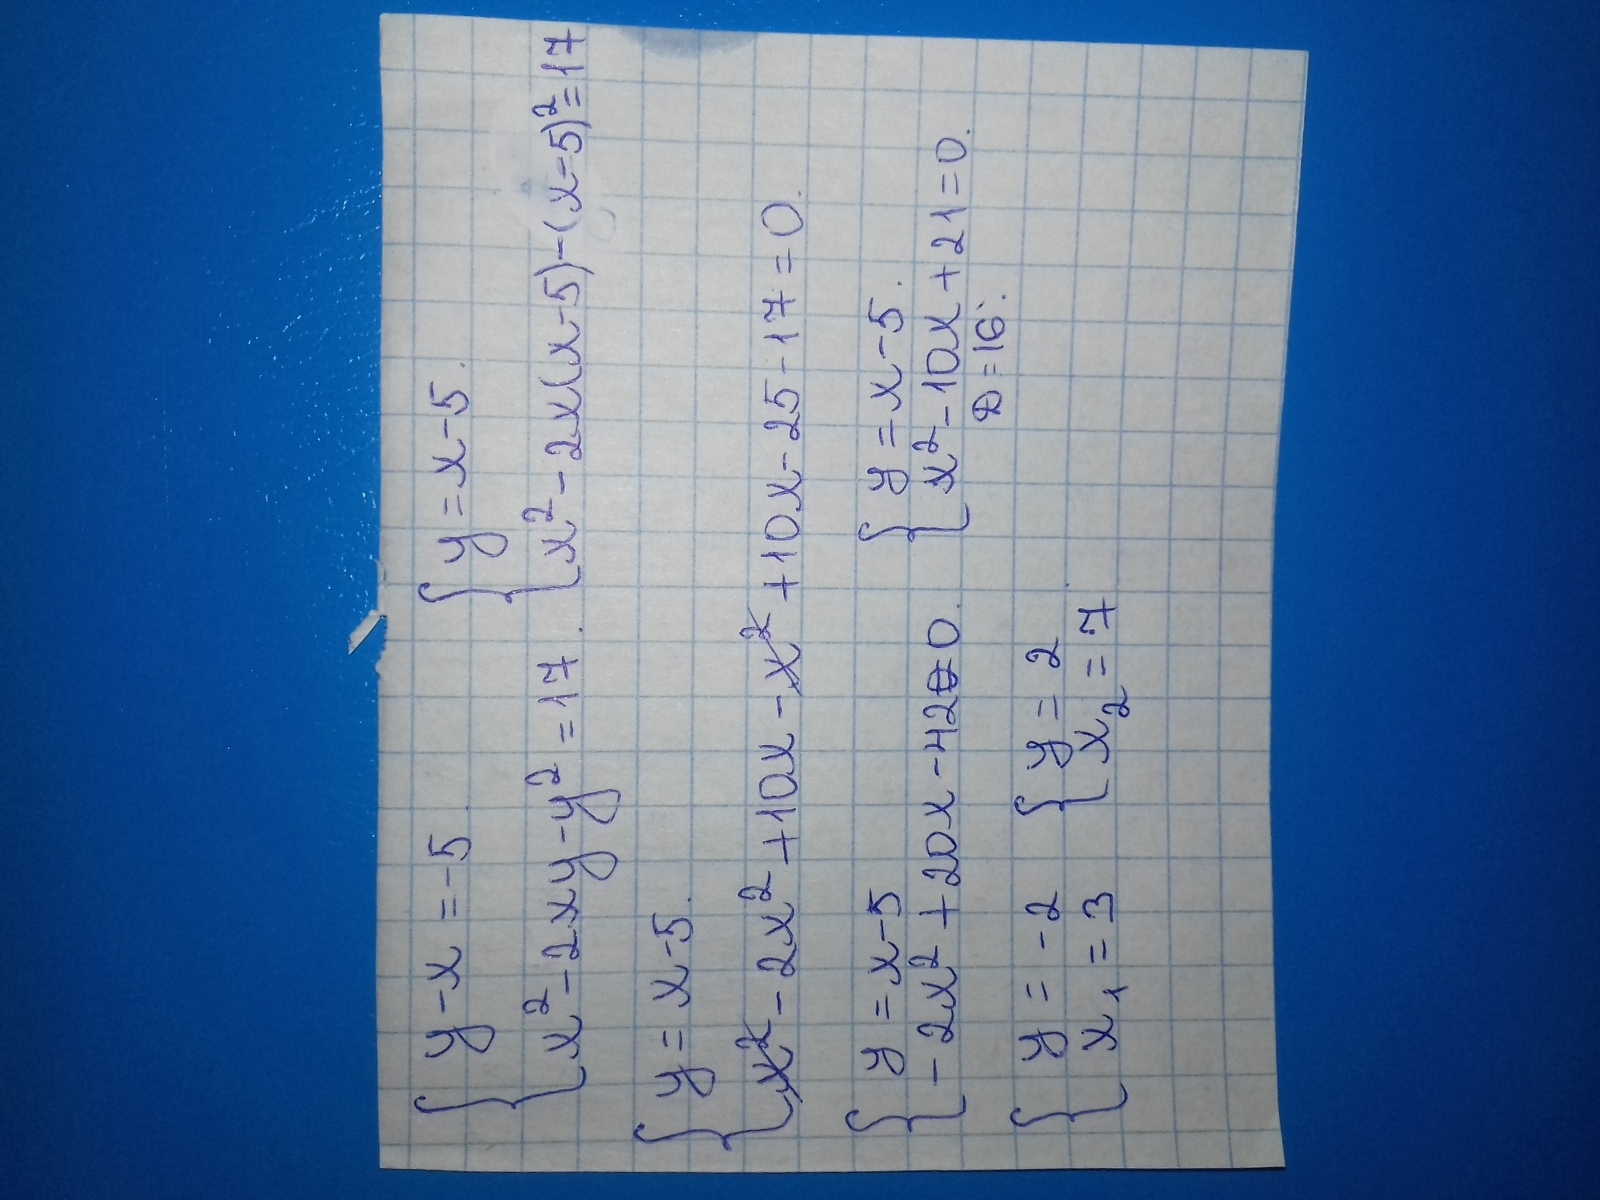 { y - x = -5 { y = x - 5.
{ x² - 2xy - y² = 17. { x² - 2x(x-5) - (x-5)² = 17
{ y = x - 5.
{ x² - 2x² + 10x - x² + 10x - 25 - 17 = 0.
{ y = x - 5 { y = x - 5.
{ -2x² + 20x - 42 = 0. { x² - 10x + 21 = 0.
D = 16.
{ y = -2 { y = 2
{ x₁ = 3 { x₂ = 7